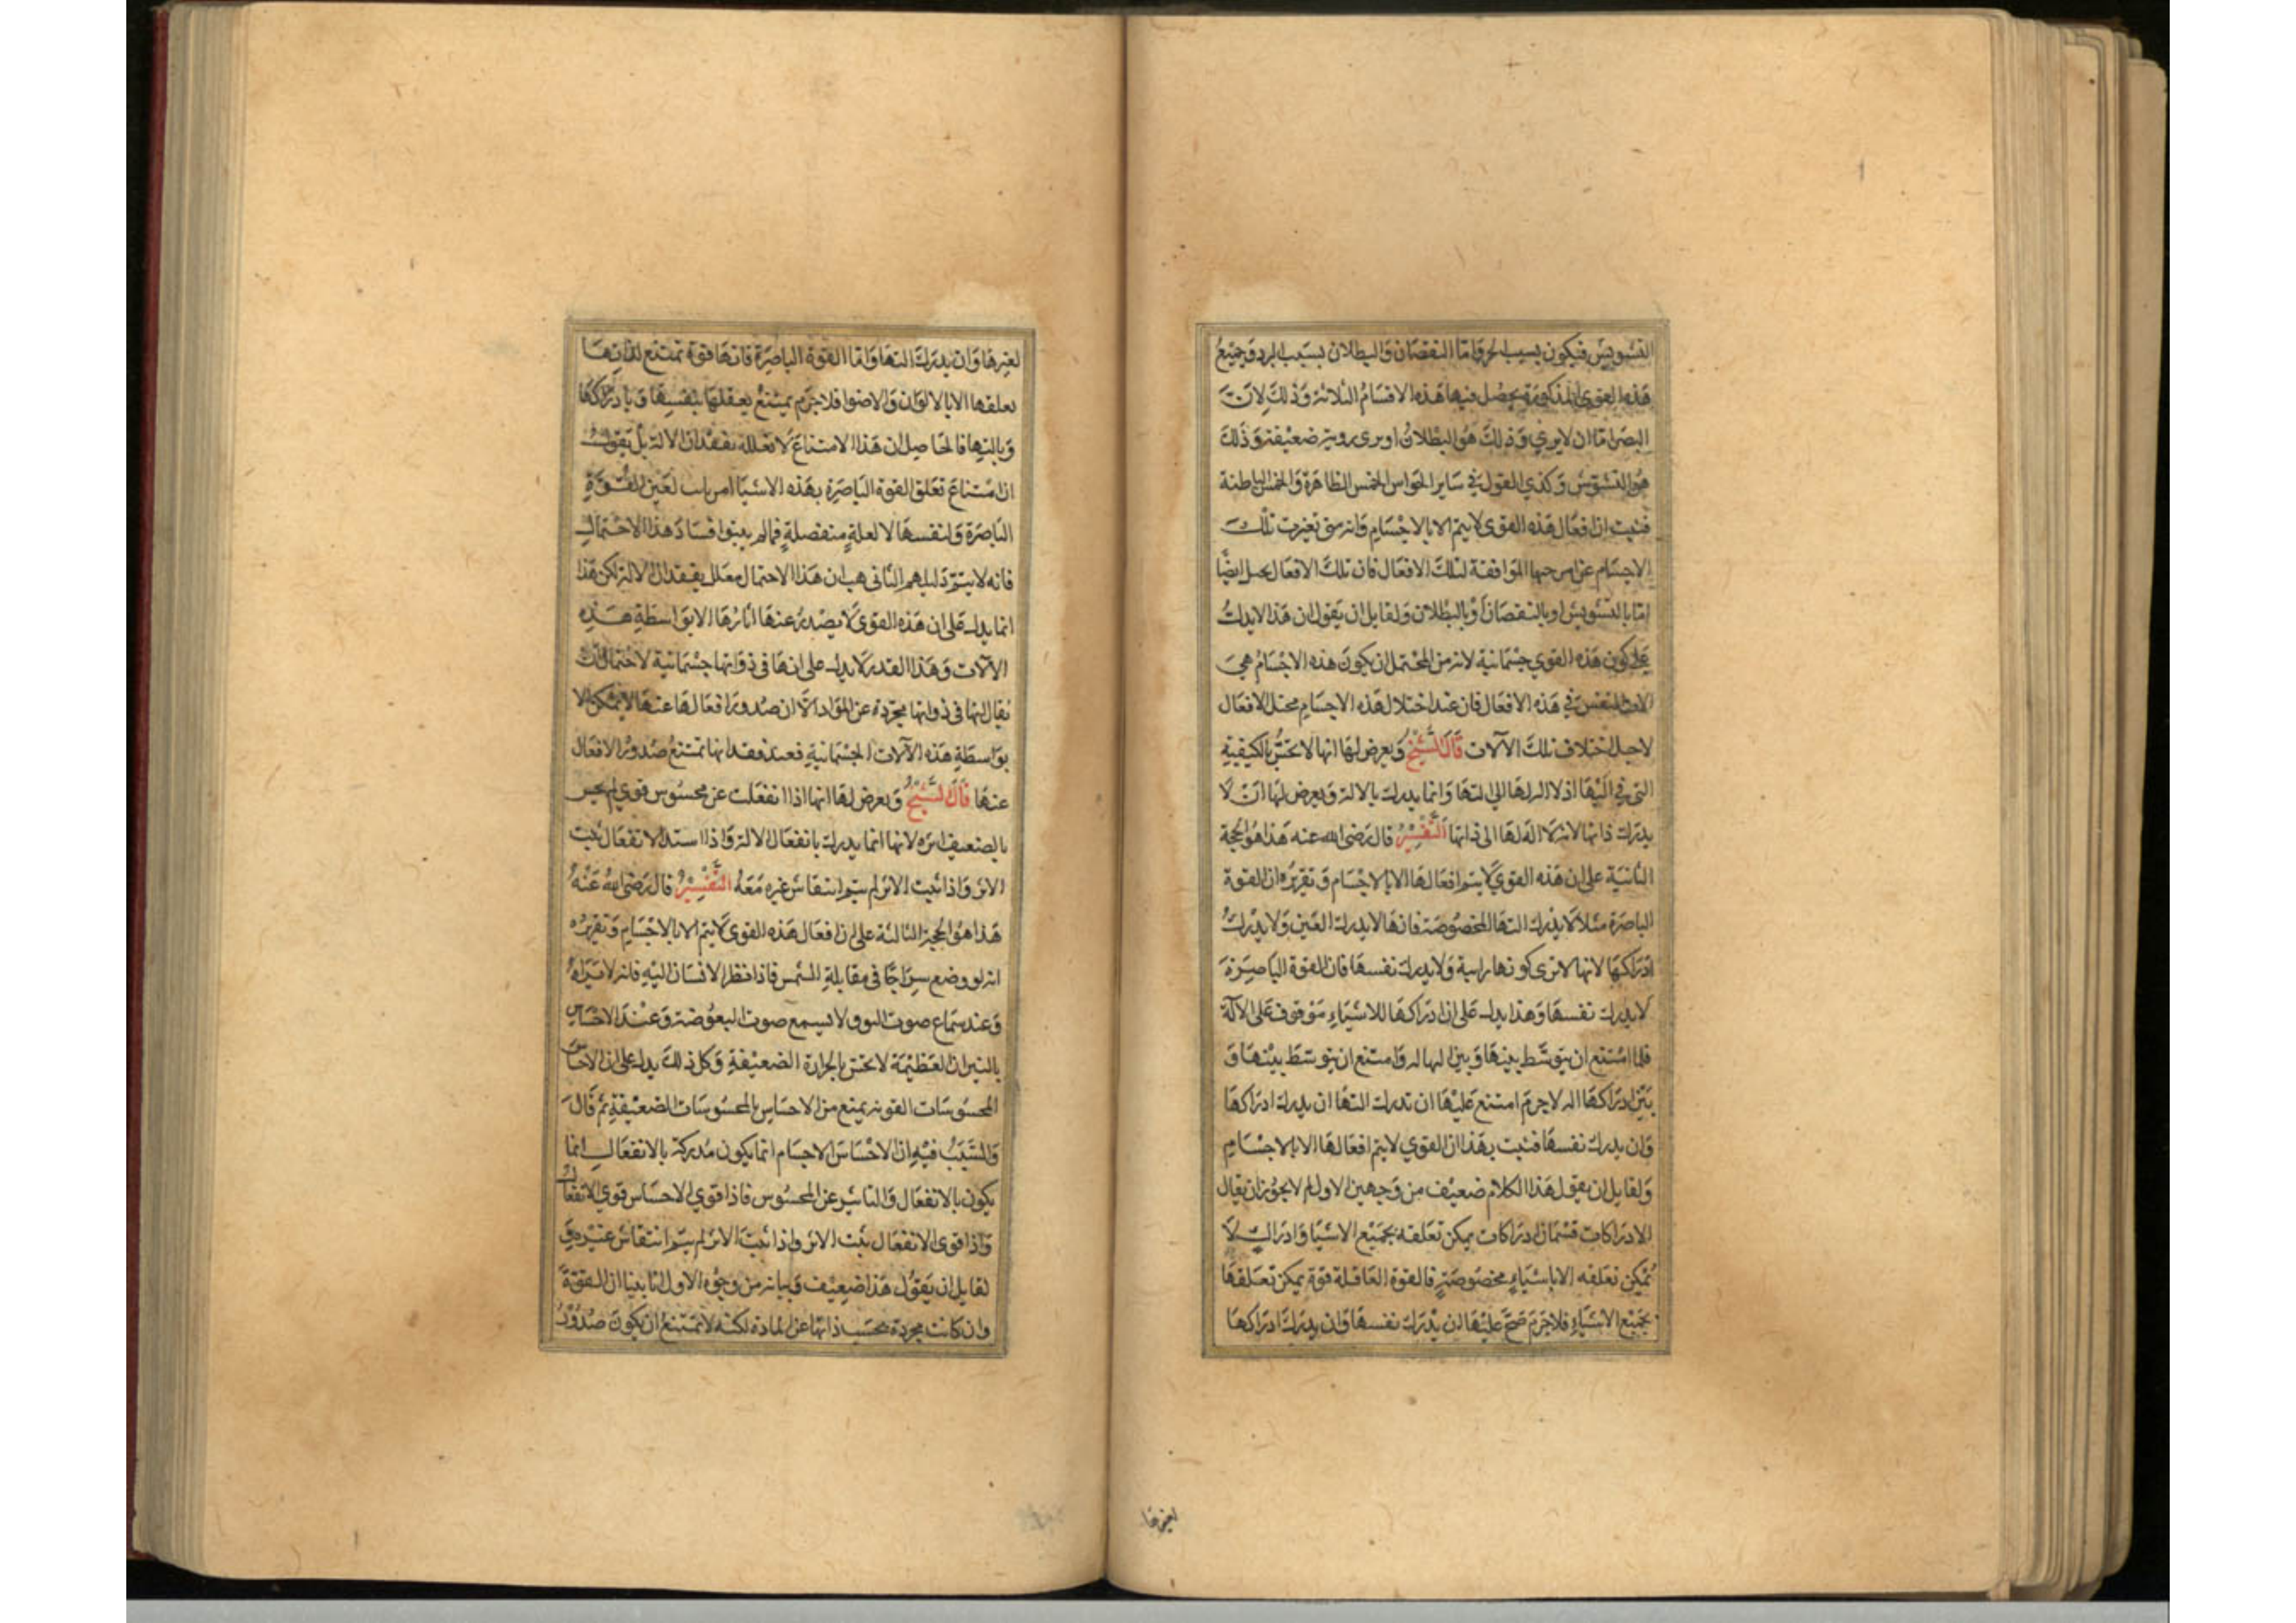 التشويش فيكون بسبب الحر واما النقصان والبطلان بسبب البرد وجميع
هذه القوى المذكورة يحصل فيها هذه الاقسام الثلاثة وذلك لان
البصر اما ان لا يرى وذلك هو البطلان او يرى روية ضعيفة وذلك
هو التشويش وكذى القول في ساير الحواس الخمس الظاهرة والخمس الباطنة
فثبت ان افعال هذه القوى لا يتم الا بالاجسام وانه متى تغيرت تلك
الاجسام عن امزجتها الموافقة لتلك الافعال فان تلك الافعال يحيل ايضا
اما بالتشويش او بالنقصان او بالبطلان ولقايل ان يقول ان هذا لا يدل
على كون هذه القوي جسمانية لانه من المحتمل ان يكون هذه الاجسام هي
الات للنفس في هذه الافعال فان عند اختلال هذه الاجسام محتل الافعال
لاجل اختلاف تلك الآلات قال الشيخ ويعرض لها انها لا تحس بالكيفية
التي في آلتها اذ لا اله لها الى التها وانما يدرك بالالة ويعرض لها ان لا
يدرك ذاتها لانه لا اله لها الى ذاتها التفسير قال رضى الله عنه هذا هو الحجة
الثانية على ان هذه القوي لا يتم افعالها الا بالاجسام وتقريره ان القوة
الباصرة مثلا لا يدرك التها المخصوصة فانها لا يدرك العين ولا يدرك
ادراكها لانها لا ترى كونها رايية ولا يدرك نفسها فان القوة الباصرة
لا يدرك نفسها وهذا يدل على ان ادراكها للاشياء موقوف على الآلة
فلما امتنع ان يتوسط بينها وبين التها اله وامتنع ان يتوسط بينها و
بين ادراكها اله لا جرم امتنع عليها ان تدرك التها ان يدرك ادراكها
وان يدرك نفسها فثبت بهذا ان القوي لا يتم افعالها الا بالاجسام
ولقايل ان يقول هذا الكلام ضعيف من وجهين الاول لم لا يجوز ان يقال
الادراكات قسمان ادراكات يمكن تعلقه بجميع الاشيا وادراك لا
يمكن تعلقه الا باشياء مخصوصة فالقوة العاقلة قوة يمكن تعلقها
بجميع الاشياء فلا جرم صح عليها ان يدرك نفسها وان يدرك ادراكها
لغيرها
لغيرها وان يدرك التها واما القوة الباصرة فانها قوة تمتنع لذاتها
تعلقها الا بالالوان والاضوا فلا جرم يمتنع تعقلها بنفسها وبادراكها
وبالتها فالحاصل ان هذا الامتناع لا تعلله بفقدان الالة بل يقول
ان امتناع تعلق القوة الباصرة بهذه الاشيا امر ثابت لعين القوة
الباصرة ولنفسها لا لعلة منفصلة فمالم يبتوا فساد هذا الاحتمال
فانه لا يتم دليلهم الثاني هب ان هذا الاحتمال معلل بفقدان الالة لكن هذا
انما يدل على ان هذه القوى لا يصدر عنها اثارها الا بواسطة هذه
الآلات وهذا القدر لا يدل على انها في ذواتها جسمانية لاحتمال ان
يقال انها في ذواتها مجردة عن المواد الا ان صدور افعالها عنها لا يمكن الا
بواسطة هذه الآلات الجسمانية فعند فقدانها تمتنع صدور الافعال
عنها قال الشيخ ويعرض لها انها اذا انفعلت عن محسوس قوي لم يحس
بالضعيف اثره لانها انما يدرك بانفعال الالة واذا استد الانفعال ثبت
الاثر واذا ثبت الاثر لم يتم انتقاش غيره معه التفسير قال رضى الله عنه
هذا هو الحجة الثالثة على ان افعال هذه القوى لا يتم الا بالاجسام وتقريره
انه لو وضع سراجا في مقابلة الشمس فاذا نظر الانسان اليه فانه لا يراه
وعند سماع صوت البوق لا يسمع صوت البعوضة وعند الاحساس
بالنيران العظيمة لا تحس بالحرارة الضعيفة وكل ذلك يدل على ان الاحساس
المحسوسات القوية يمنع من الاحساس بالمحسوسات الضعيفة ثم قال
والسبب فيه ان الاحساس الاجسام انما يكون مدركة بالانفعال انما
يكون بالانفعال والتاثير عن المحسوس فاذا قوي الاحساس قوي الانفعال
واذا قوى الانفعال ثبت الاثر واذا ثبت الاثر لم يتم انتقاش غيره و
لقايل ان يقول هذا ضعيف وبيانه من وجوه الاول انا بينا ان القوة
وان كانت مجردة بحسب ذاتها عن المادة لكنه لا تمتنع ان يكون صدور